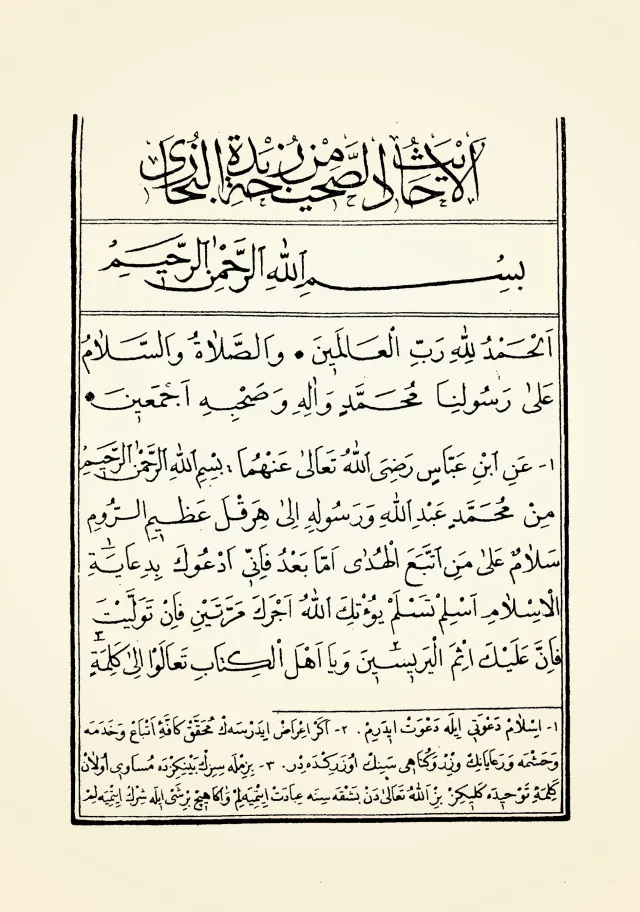 الاحاديث الصحيحة من زبدة البخاري
بسم الله الرحمن الرحيم
اَلْحَمْدُ لِلّٰهِ رَبِّ الْعَالَمِينَ • وَالصَّلَاةُ وَالسَّلَامُ
عَلٰى رَسُولِنَا مُحَمَّدٍ وَاٰلِهِ وَصَحْبِهِ اَجْمَعِينَ •
١- عَنِ ابْنِ عَبَّاسٍ رَضِىَ اللّٰهُ تَعَالٰى عَنْهُمَا : بِسْمِ اللّٰهِ الرَّحْمٰنِ الرَّحِيمِ
مِنْ مُحَمَّدٍ عَبْدِ اللّٰهِ وَرَسُولِهِ اِلٰى هِرَقْلَ عَظِيمِ الرُّومِ
سَلَامٌ عَلٰى مَنِ اتَّبَعَ الْهُدٰى اَمَّا بَعْدُ فَاِنِّى اَدْعُوكَ بِدِعَايَةِ
الْاِسْلَامِ اَسْلِمْ تَسْلَمْ يُؤْتِكَ اللّٰهُ اَجْرَكَ مَرَّتَيْنِ فَاِنْ تَوَلَّيْتَ
فَاِنَّ عَلَيْكَ اِثْمَ الْيَرِيسِيينَ ٢ وَيَا اَهْلَ الْكِتَابِ تَعَالَوْا اِلٰى كَلِمَةٍ ٣
١- اِسْلَامْ دَعْوَتِى اِيلَه دَعْوَتْ اِيدَرِمْ . ٢- اَكَرْ اِعْرَاضْ اِيدَرْسَهكْ مُحَقَّقْ كَافَّهءِ اَتْبَاعْ وَخَدَمَه
وَحَشَمَه وَرَعَايَانِكْ وِزْر وَكُنَاهِى سَنِكْ اُوزَرِكْدَهدِرْ. ٣- بِزِمْلَه سِزِكْ بَيْنِكِزْدَه مُسَاوِى اُولَانْ
كَلِمَهءِ تَوْحِيدَه كَلِيكِزْ بِزْ اَللّٰهُ تَعَالٰى دَنْ بَشْقَه سِنَه عِبَادَتْ اِيتْمِيَهلِمْ وَاكَا هِيچْ بِرْ شَئِى اِيلَه شِرْكْ اِيتْمِيَهلِمْ